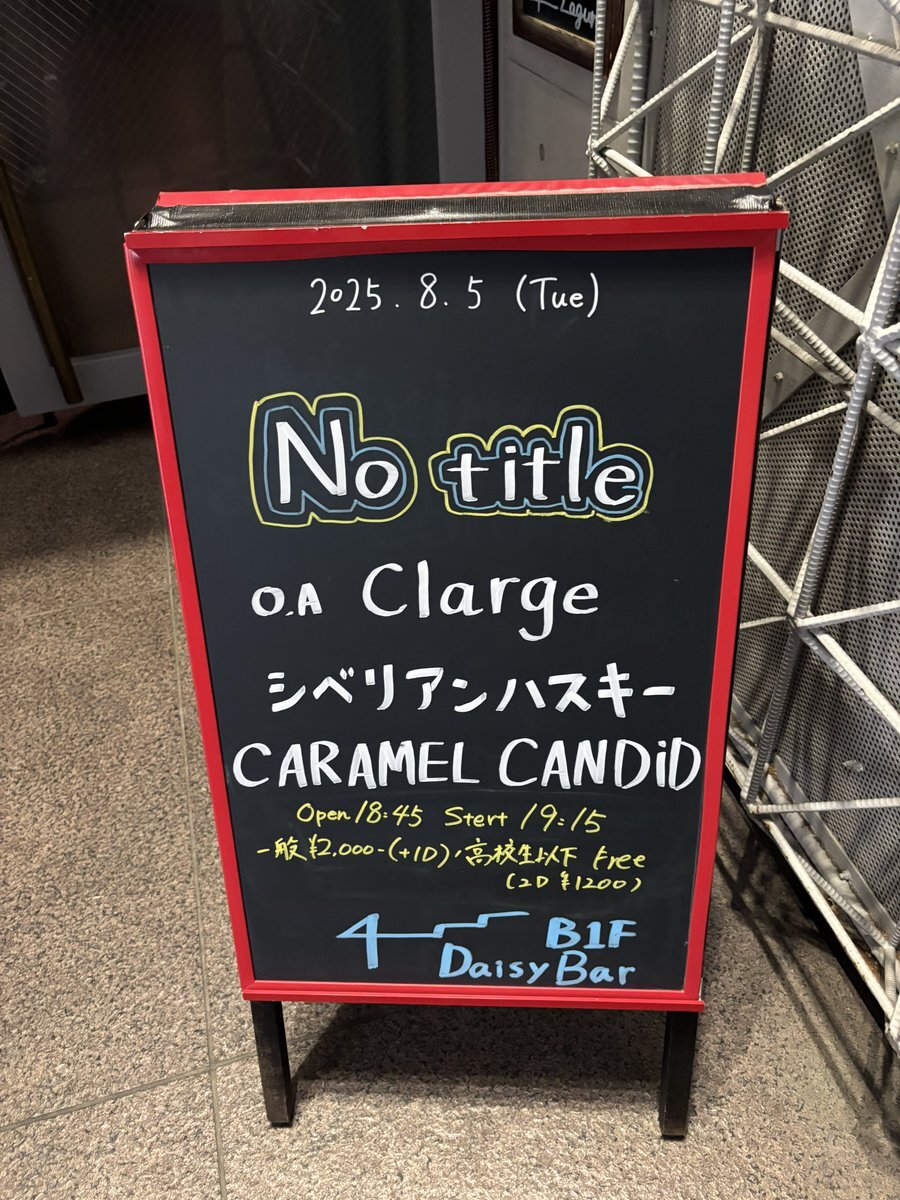 Lagun
2025.8.5 (Tue)
No title
O.A Clarge
シベリアンハスキー
CARAMEL CANDiD
Open 18:45 Start 19:15
一般 ¥2,000-(+1D), 高校生以下 Free
(2D ¥1200)
B1F
Daisy Bar